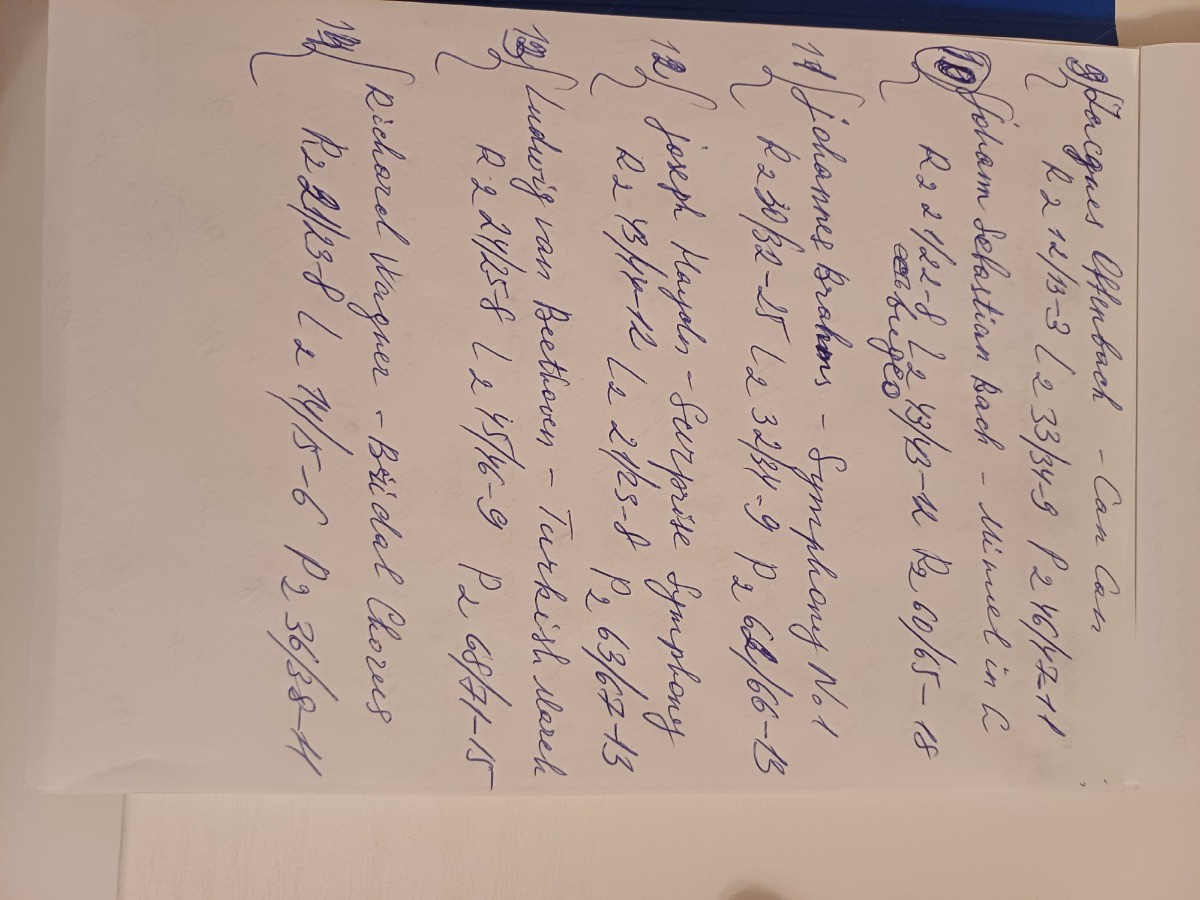 9) Jacques Offenbach - Can Can
R2 12/13-3 L2 33/34-9 P2 46/47-11
10) Johann Sebastian Bach - Minuet in G
R2 21/22-8 L2 43/43-12 P2 60/65-18
есть видео
11) Johannes Brahms - Symphony No 1
R2 30/32-25 L2 32/34-9 P2 62/66-13
12) Joseph Haydn - Surprise Symphony
R2 43/44-12 L2 21/23-8 P2 63/67-13
13) Ludwig van Beethoven - Turkish March
R2 24/25-8 L2 45/46-9 P2 68/71-15
14) Richard Wagner - Bridal Chorus
R2 21/23-8 L2 14/15-6 P2 36/38-11